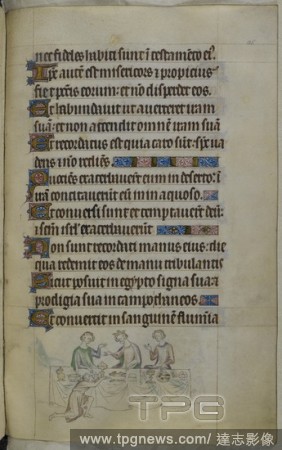 nec fideles habiti sunt ī testamēto ei9.
Ipē autē est misericors ⁊ propicius
fiet pctīs eorum: et nō disperdet eos.
Et habundauit ut auerteret iram
suā: et non accendit omnē iram suā
Et recordatus est quia caro sūt: ua
dens ⁊ nō rediēs.
Quociēs exacerbauerūt eum in deserto: ī
irā concitauerūt eū in inaquoso.
Et conuersi sunt et temptauerūt deū:
⁊ scm̄ isrl̄ exacerbauerūt
Non sunt recordati manus eius: die
qua redemit eos de manu tribulantis
Sicut posuit in egypto signa sua: ⁊
prodigia sua in campo thaneos
Et conuertit in sanguinē flumina
TPG
www.tpgnews.com/達志影像